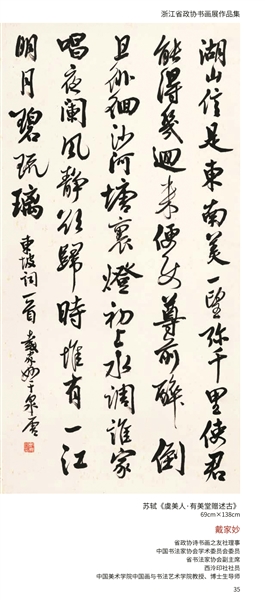 浙江省政协书画展作品集
湖山信是東南美一望弥千里使君
能得幾迴来便使尊前醉倒
且徘徊沙河塘裏燈初上水調誰家
唱夜闌風静欲歸時惟有一江
明月碧琉璃
東坡詞一首 戴家妙于泉唐
苏轼《虞美人·有美堂赠述古》
69cm×138cm
戴家妙
省政协诗书画之友社理事
中国书法家协会学术委员会委员
省书法家协会副主席
西泠印社社员
中国美术学院中国画与书法艺术学院教授、博士生导师
35